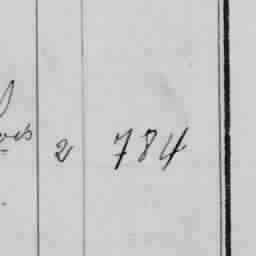 2 784